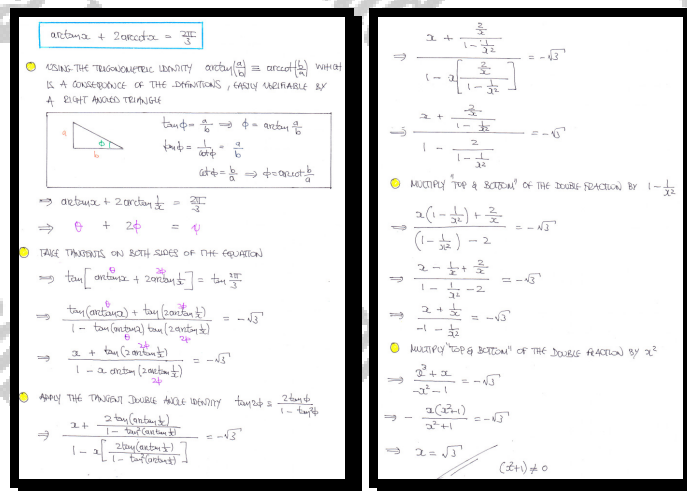 arctanx + 2arccotx = 2π/3
USING THE TRIGONOMETRIC IDENTITY arctan(a/b) ≡ arccot(b/a) WHICH
IS A CONSEQUENCE OF THE DEFINITIONS, EASILY VERIFIABLE BY
A RIGHT ANGLED TRIANGLE
a
φ
b
tanφ = a/b ⇒ φ = arctan a/b
tanφ = 1/cotφ = a/b
cotφ = b/a ⇒ φ = arccot b/a
⇒ arctanx + 2arctan 1/x = 2π/3
⇒ θ + 2φ = ψ
TAKE TANGENTS ON BOTH SIDES OF THE EQUATION
θ 2φ
⇒ tan[arctanx + 2arctan 1/x] = tan 2π/3
θ 2φ
⇒ (tan(arctanx) + tan(2arctan 1/x)) / (1 - tan(arctanx) tan(2arctan 1/x)) = -√3
θ 2φ
2φ
⇒ (x + tan(2arctan 1/x)) / (1 - x arctan(2arctan 1/x)) = -√3
2φ
APPLY THE TANGENT DOUBLE ANGLE IDENTITY tan2φ ≡ 2tanφ / (1 - tan²φ)
⇒ (x + 2tan(arctan 1/x) / (1 - tan²(arctan 1/x))) / (1 - x[2tan(arctan 1/x) / (1 - tan²(arctan 1/x))]) = -√3
⇒ (x + (2/x) / (1 - 1/x²)) / (1 - x[(2/x) / (1 - 1/x²)]) = -√3
⇒ (x + (2/x) / (1 - 1/x²)) / (1 - 2 / (1 - 1/x²)) = -√3
MULTIPLY "TOP & BOTTOM" OF THE DOUBLE FRACTION BY 1 - 1/x²
⇒ (x(1 - 1/x²) + 2/x) / ((1 - 1/x²) - 2) = -√3
⇒ (x - 1/x + 2/x) / (1 - 1/x² - 2) = -√3
⇒ (x + 1/x) / (-1 - 1/x²) = -√3
MULTIPLY "TOP & BOTTOM" OF THE DOUBLE FRACTION BY x²
⇒ (x³ + x) / (-x² - 1) = -√3
⇒ - x(x²+1) / (x²+1) = -√3
⇒ x = √3
(x²+1) ≠ 0